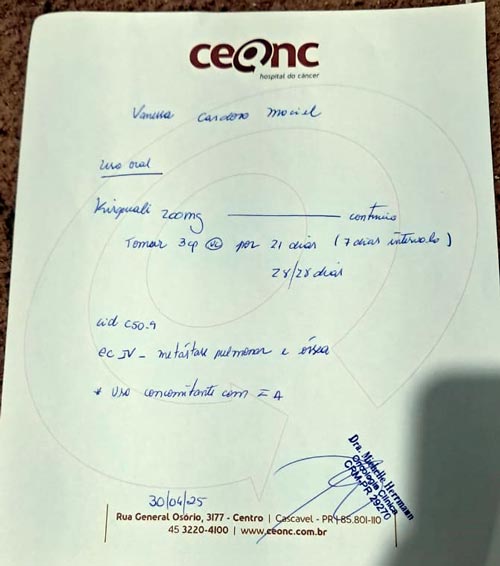 ceonc
hospital do câncer
Vanessa Cardoso Maciel
Uso oral
Kisquali 200mg ——— contínuo
Tomar 3cp VO por 21 dias (7 dias intervalo)
28/28 dias
cid C50.9
EC IV - metástase pulmonar e óssea
* Uso concomitante com IA
Dra. Michelle Herrmann
Oncologia Clínica
CRM-PR 29270
30/04/25
Rua General Osório, 3177 - Centro | Cascavel - PR | 85.801-110
45 3220-4100 | www.ceonc.com.br